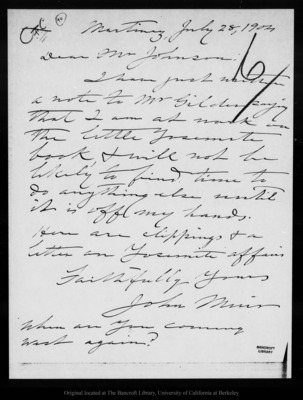 Martinez, July 28, 1904
Dear Mr Johnson.
I have just written
a note to Mr Gilder saying
that I am at work on
the little Yosemite
book, & will not be
likely to find time to
do anything else until
it is off my hands.
Here are clippings & a
letter on Yosemite affairs
Faithfully Yours
John Muir
When are you coming
west again?
BANCROFT
LIBRARY
Original located at The Bancroft Library, University of California at Berkeley